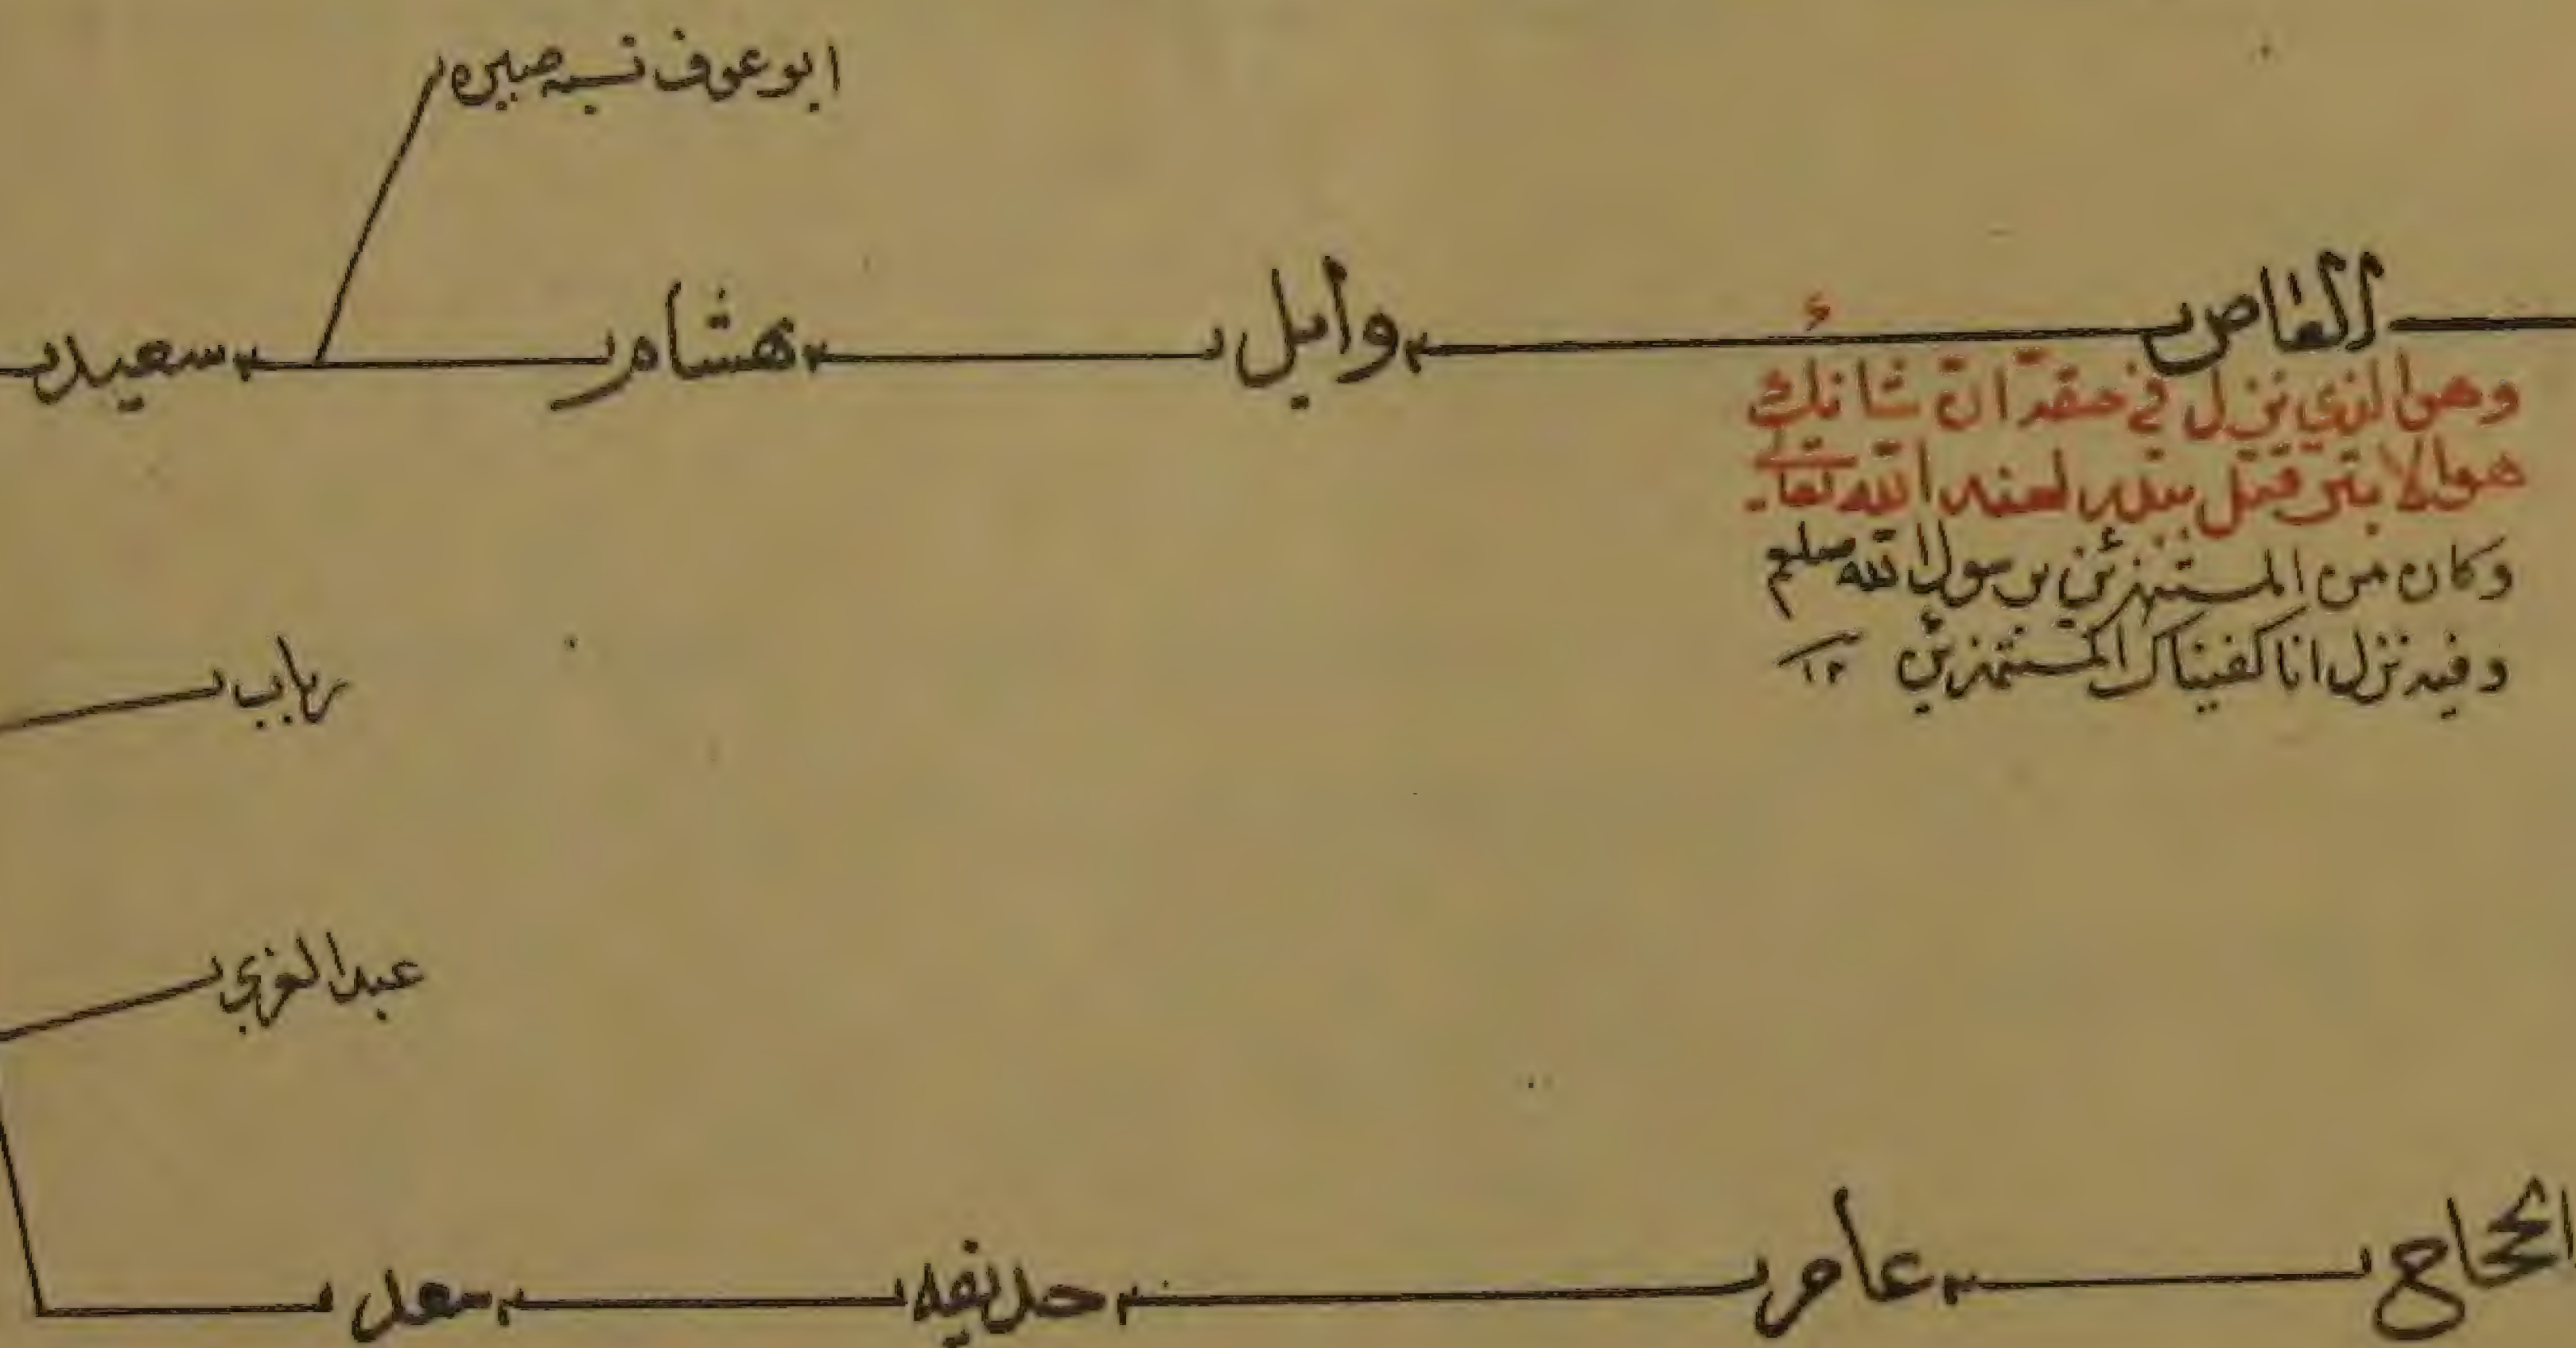 ابو عوف نسبه صبيره
العاص وايل هشام سعيد
وهو الذي نزل في حقه ان شانك
هو الابتر قتل ببدر لعنه الله تعالى
وكان من المستهزئين برسول الله صلعم
وفيه نزل انا كفيناك المستهزئين ١٢
رباب
عبد العزي
الحجاج عامر حذيفه سعد